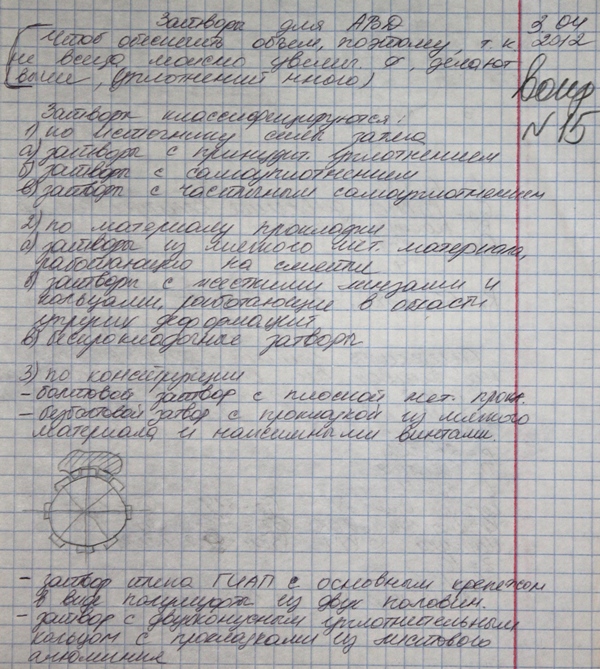 Затворы для АВД
3 04
2012
(Чтоб обеспечить объем, поэтому, т.к
не всегда можно увелич. Ф, делают
выше, уплотнений много)
Вопр
N 15
Затворы классифицируются:
1) по источнику силы
а) затворы с принудит. уплотнением
б) затворы с самоуплотнением
в) затворы с частичным самоуплотнением
2) по материалу прокладки
а) затворы из мягкого мет. материала,
работающего на смятие
б) затворы с жесткими линзами и
кольцами, работающие в области
упругих деформаций
в) беспрокладочные затворы
3) по конструкции
- болтовой затвор с плоской мет. прокл.
- безболтовой затвор с прокладкой из мягкого
материала и нажимными винтами.
- затвор типа ГИАП с основным крепежом
в виде полумуфты из двух половин.
- затвор с двухконусным уплотнительным
кольцом с прокладками из листового
алюминия